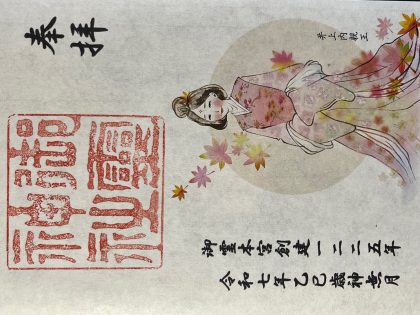 奉拝
井上内親王
御霊神社
御霊本宮創建一二二五年
令和七年乙巳歳神無月